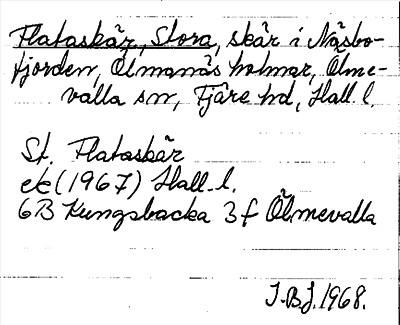 Flataskär, Stora, skär i Näsbo-
fjorden, Ölmanäs holmar, Ölme-
valla sn, Fjäre hd, Hall. l.
St. Flataskär
ek (1967) Hall. l.
6B Kungsbacka 3f Ölmevalla
I.B.J. 1968.